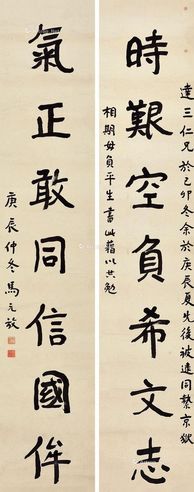 達三仁兄於己卯冬余於庚辰夏先後被逮同繫京獄
時艱空負希文志
相期毋負平生書此藉以共勉
氣正敢同信國侔
庚辰仲冬馬元放